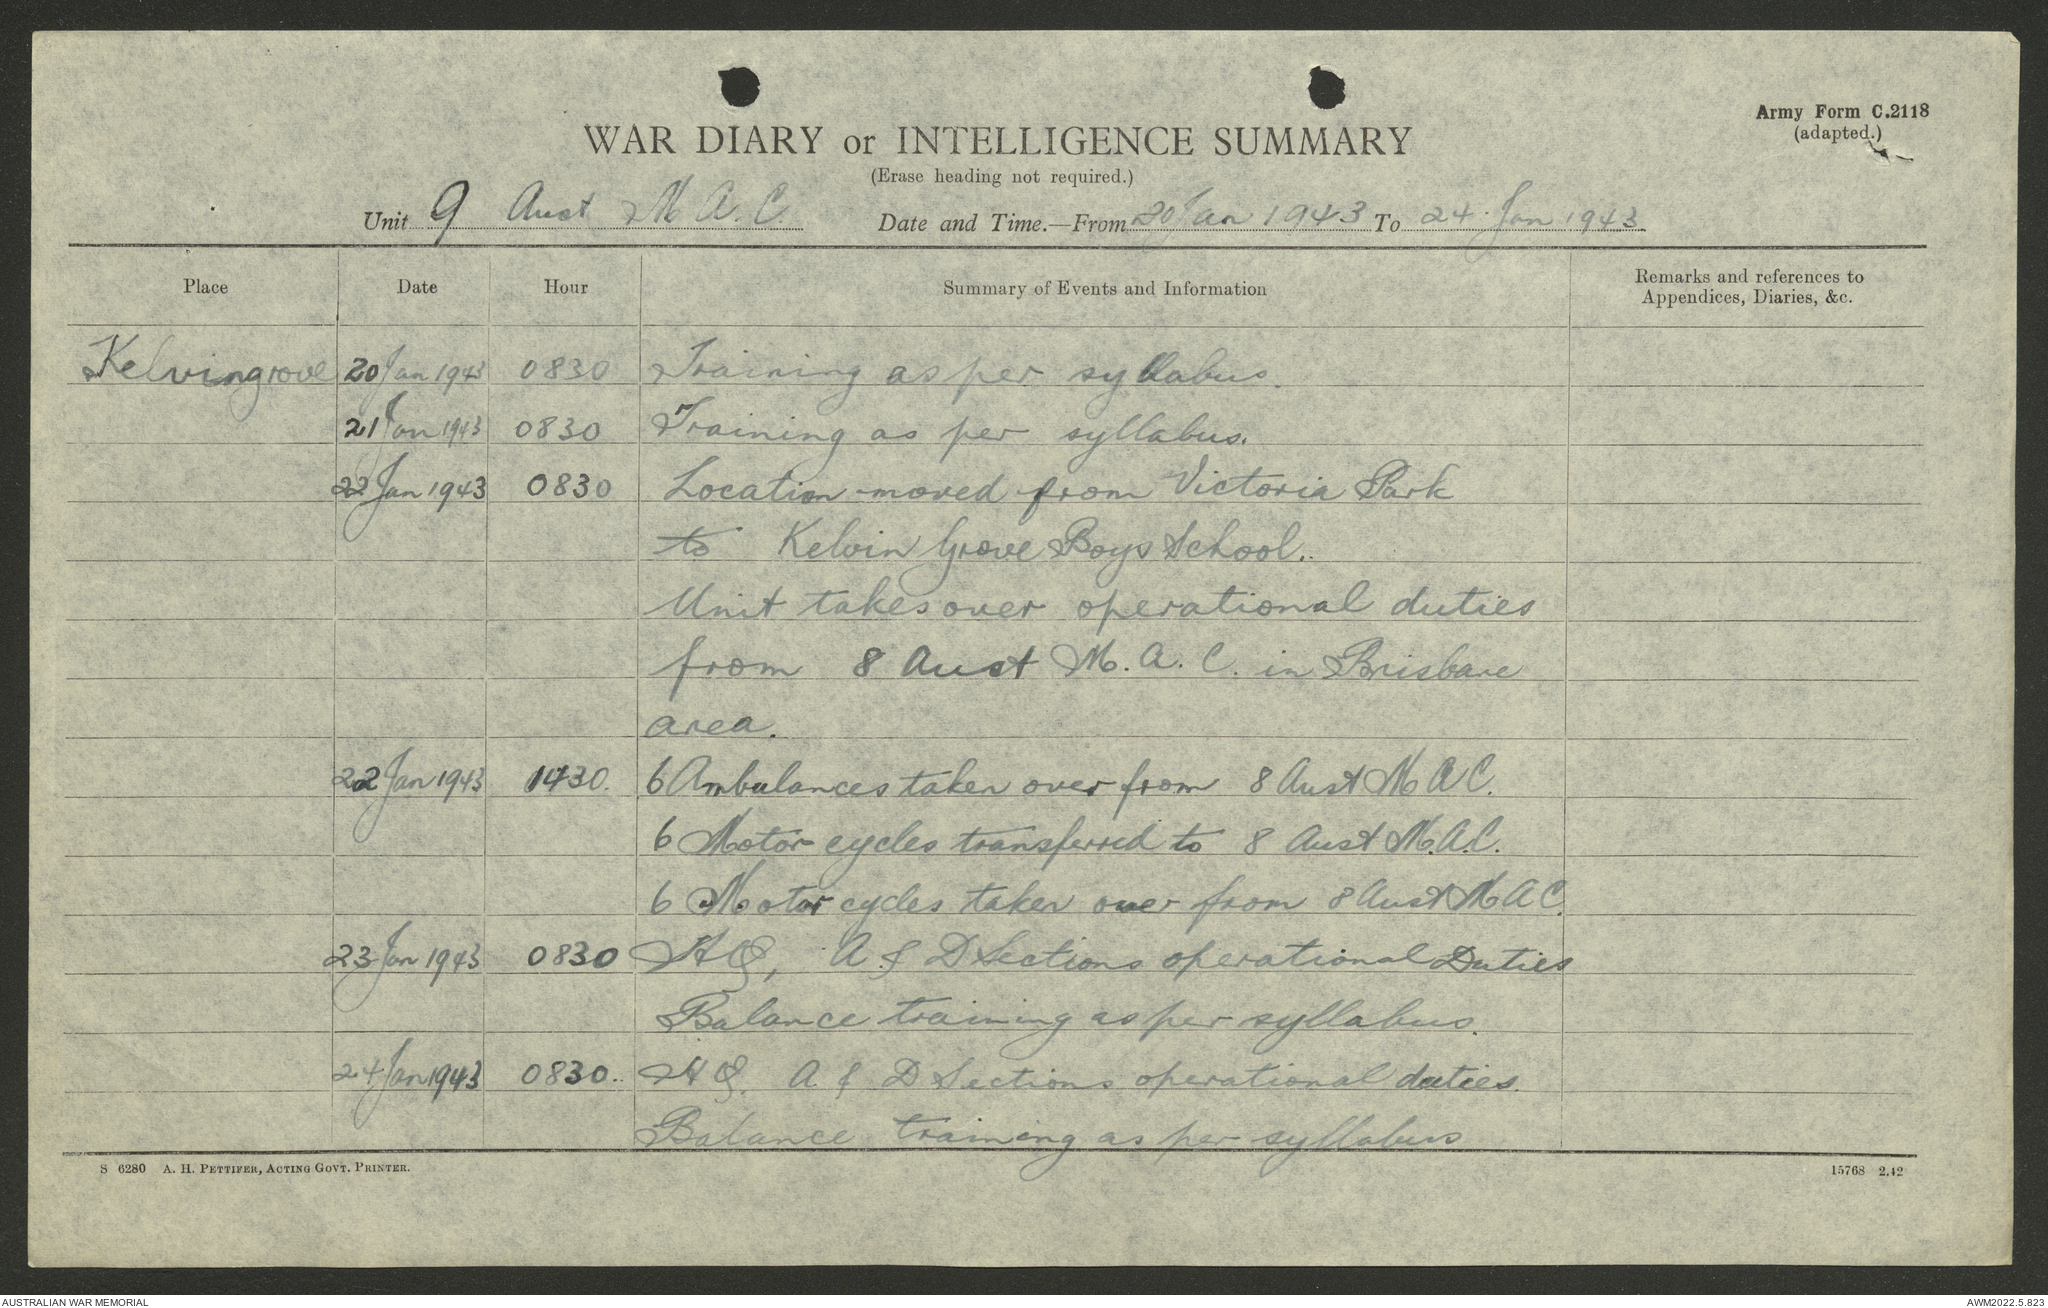 Army Form C.2118
(adapted.)
WAR DIARY or INTELLIGENCE SUMMARY
(Erase heading not required.)
Unit 9 Aust M A.C. Date and Time.—From 20 Jan 1943 To 24 Jan 1943
Place Date Hour Summary of Events and Information Remarks and references to Appendices, Diaries, &c.
Kelvingrove 20 Jan 1943 0830 Training as per syllabus.
21 Jan 1943 0830 Training as per syllabus.
22 Jan 1943 0830 Location moved from Victoria Park
to Kelvin Grove Boys School.
Unit takes over operational duties
from 8 Aust M.A.C. in Brisbane
area.
22 Jan 1943 1430. 6 Ambulances taken over from 8 Aust M A C.
6 Motor cycles transferred to 8 Aust M.A.C.
6 Motor cycles taken over from 8 Aust M A C.
23 Jan 1943 0830 HQ, A & D Sections operational Duties
Balance training as per syllabus.
24 Jan 1943 0830. HQ. A & D Sections operational duties.
Balance training as per syllabus
S 6280 A. H. PETTIFER, ACTING GOVT. PRINTER. 15768 2.42
AUSTRALIAN WAR MEMORIAL AWM2022.5.823